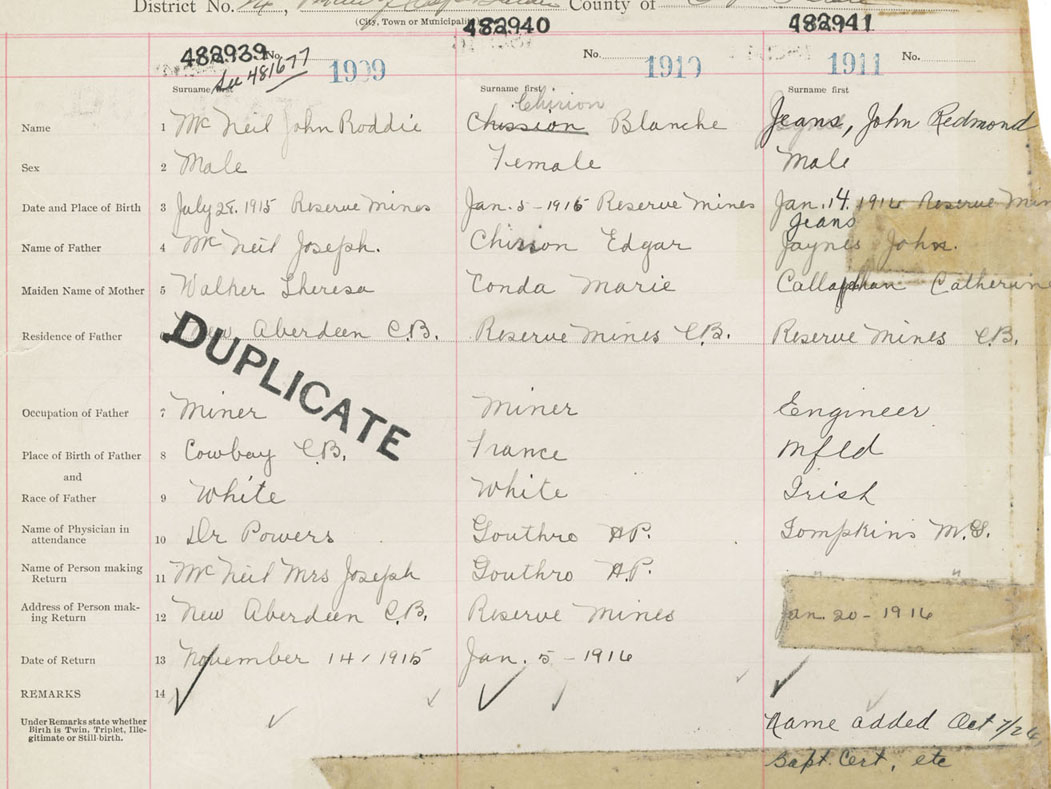 District No. County of
(City, Town or Municipality)
482939 482940 482941
No. See 481677 1909 No. 1910 1911 No.
Surname first Surname first Surname first
Chirion
Name 1 McNeil John Roddie Chission Blanche Jeans, John Redmond
Sex 2 Male Female Male
Date and Place of Birth 3 July 28. 1915 Reserve Mines Jan. 5 - 1916 Reserve Mines Jan. 14. 1916 Reserve
Jeans
Name of Father 4 McNeil Joseph. Edgar Jaynes John.
Maiden Name of Mother 5 Walker Theresa Conda Marie Callaghan Catherine
Residence of Father New Aberdeen C.B. Reserve Mines C.B. Reserve Mines C.B.
DUPLICATE
Occupation of Father 7 Miner Miner Engineer
Place of Birth of Father 8 Cowbay C.B. France Nfld
and
Race of Father 9 White White Irish
Name of Physician in
attendance 10 Dr Powers Gouthro A.P. Tompkins M.G.
Name of Person making
Return 11 McNeil Mrs Joseph Gouthro A.P. " "
Address of Person mak-
ing Return 12 New Aberdeen C.B. Reserve Mines Jan. 20 - 1916
Date of Return 13 November 14/1915 Jan. 5 - 1916
REMARKS 14
Under Remarks state whether
Birth is Twin, Triplet, Ille-
gitimate or Still-birth.
Name added Oct 7/26
Bapt. Cert, etc